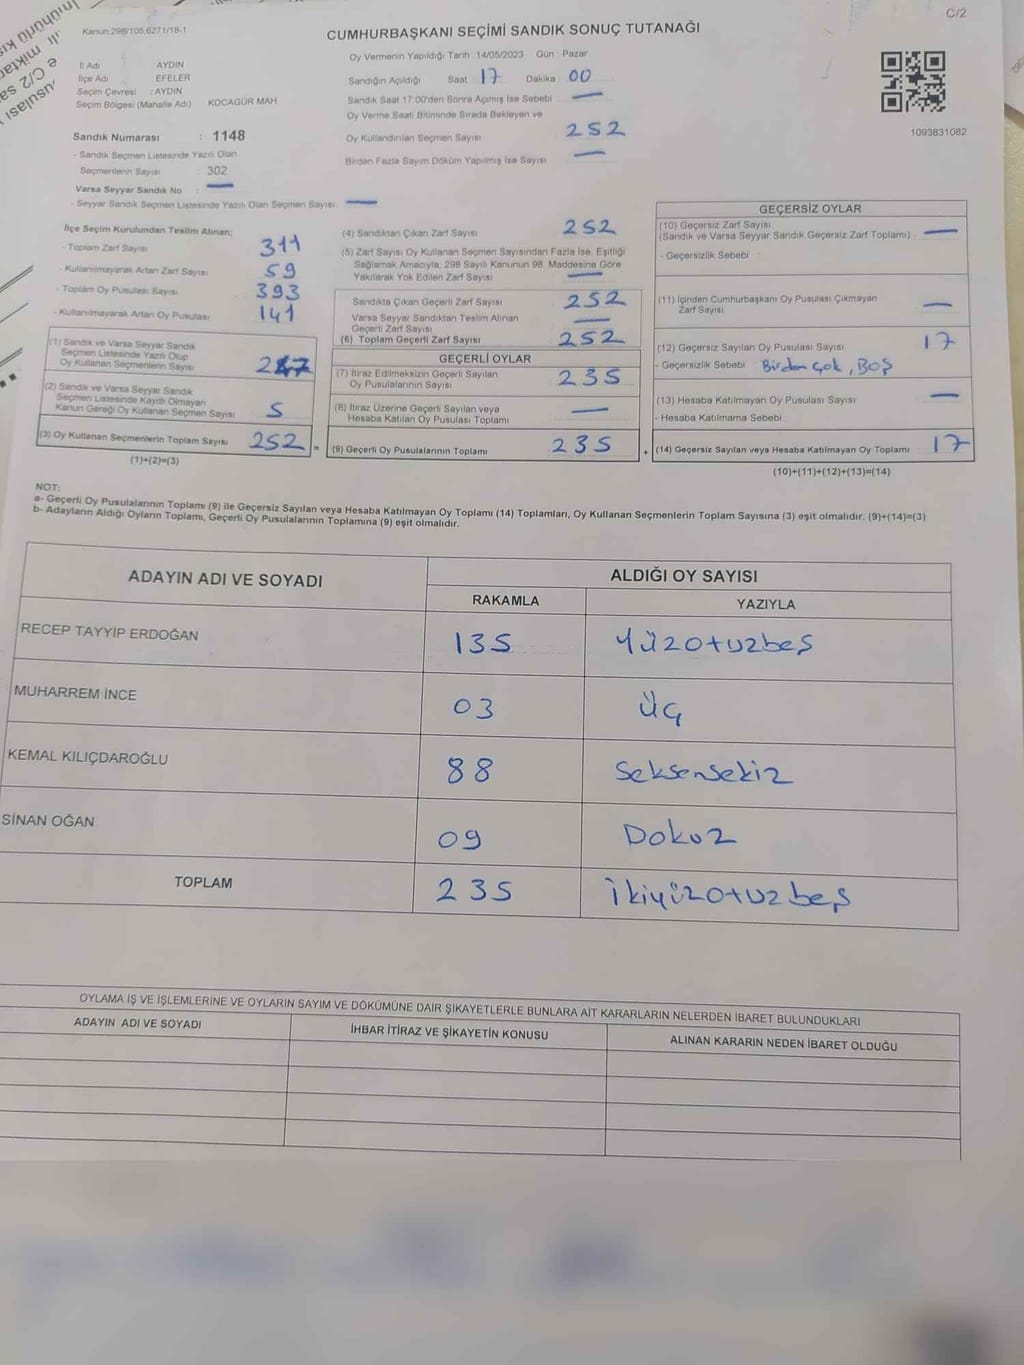 C/2
Kanun:298/105,6271/18-1
CUMHURBAŞKANI SEÇİMİ SANDIK SONUÇ TUTANAĞI
İl Adı AYDIN
İlçe Adı EFELER
Seçim Çevresi : AYDIN
Seçim Bölgesi (Mahalle Adı) KOCAGÜR MAH
Sandık Numarası : 1148
- Sandık Seçmen Listesinde Yazılı Olan
Seçmenlerin Sayısı : 302
Varsa Seyyar Sandık No : —
- Seyyar Sandık Seçmen Listesinde Yazılı Olan Seçmen Sayısı: —
Oy Vermenin Yapıldığı Tarih : 14/05/2023 Gün : Pazar
Sandığın Açıldığı Saat 17 Dakika 00
Sandık Saat 17:00'den Sonra Açılmış İse Sebebi : —
Oy Verme Saati Bitiminde Sırada Bekleyen ve
Oy Kullandırılan Seçmen Sayısı 252
Birden Fazla Sayım Döküm Yapılmış İse Sayısı —
1093831082
İlçe Seçim Kurulundan Teslim Alınan;
- Toplam Zarf Sayısı 311
- Kullanılmayarak Artan Zarf Sayısı 59
- Toplam Oy Pusulası Sayısı 393
- Kullanılmayarak Artan Oy Pusulası 141
(1) Sandık ve Varsa Seyyar Sandık
Seçmen Listesinde Yazılı Olup
Oy Kullanan Seçmenlerin Sayısı 247
(2) Sandık ve Varsa Seyyar Sandık
Seçmen Listesinde Kayıtlı Olmayan
Kanun Gereği Oy Kullanan Seçmen Sayısı 5
(3) Oy Kullanan Seçmenlerin Toplam Sayısı 252 =
(1)+(2)=(3)
(4) Sandıktan Çıkan Zarf Sayısı 252
(5) Zarf Sayısı Oy Kullanan Seçmen Sayısından Fazla İse, Eşitliği
Sağlamak Amacıyla, 298 Sayılı Kanunun 98. Maddesine Göre
Yakılarak Yok Edilen Zarf Sayısı —
Sandıkta Çıkan Geçerli Zarf Sayısı 252
Varsa Seyyar Sandıktan Teslim Alınan
Geçerli Zarf Sayısı —
(6) Toplam Geçerli Zarf Sayısı 252
GEÇERLİ OYLAR
(7) İtiraz Edilmeksizin Geçerli Sayılan
Oy Pusulalarının Sayısı 235
(8) İtiraz Üzerine Geçerli Sayılan veya
Hesaba Katılan Oy Pusulası Toplamı —
(9) Geçerli Oy Pusulalarının Toplamı 235 +
GEÇERSİZ OYLAR
(10) Geçersiz Zarf Sayısı
(Sandık ve Varsa Seyyar Sandık Geçersiz Zarf Toplamı) : —
- Geçersizlik Sebebi :
(11) İçinden Cumhurbaşkanı Oy Pusulası Çıkmayan
Zarf Sayısı —
(12) Geçersiz Sayılan Oy Pusulası Sayısı 17
- Geçersizlik Sebebi : Birden çok, BOŞ
(13) Hesaba Katılmayan Oy Pusulası Sayısı —
- Hesaba Katılmama Sebebi :
(14) Geçersiz Sayılan veya Hesaba Katılmayan Oy Toplamı 17
(10)+(11)+(12)+(13)=(14)
NOT:
a- Geçerli Oy Pusulalarının Toplamı (9) ile Geçersiz Sayılan veya Hesaba Katılmayan Oy Toplamı (14) Toplamları, Oy Kullanan Seçmenlerin Toplam Sayısına (3) eşit olmalıdır. (9)+(14)=(3)
b- Adayların Aldığı Oyların Toplamı, Geçerli Oy Pusulalarının Toplamına (9) eşit olmalıdır.
ADAYIN ADI VE SOYADI ALDIĞI OY SAYISI
RAKAMLA YAZIYLA
RECEP TAYYİP ERDOĞAN 135 Yüzotuzbeş
MUHARREM İNCE 03 Üç
KEMAL KILIÇDAROĞLU 88 Seksensekiz
SİNAN OĞAN 09 Dokuz
TOPLAM 235 İkiyüzotuzbeş
OYLAMA İŞ VE İŞLEMLERİNE VE OYLARIN SAYIM VE DÖKÜMÜNE DAİR ŞİKAYETLERLE BUNLARA AİT KARARLARIN NELERDEN İBARET BULUNDUKLARI
ADAYIN ADI VE SOYADI İHBAR İTİRAZ VE ŞİKAYETİN KONUSU ALINAN KARARIN NEDEN İBARET OLDUĞU